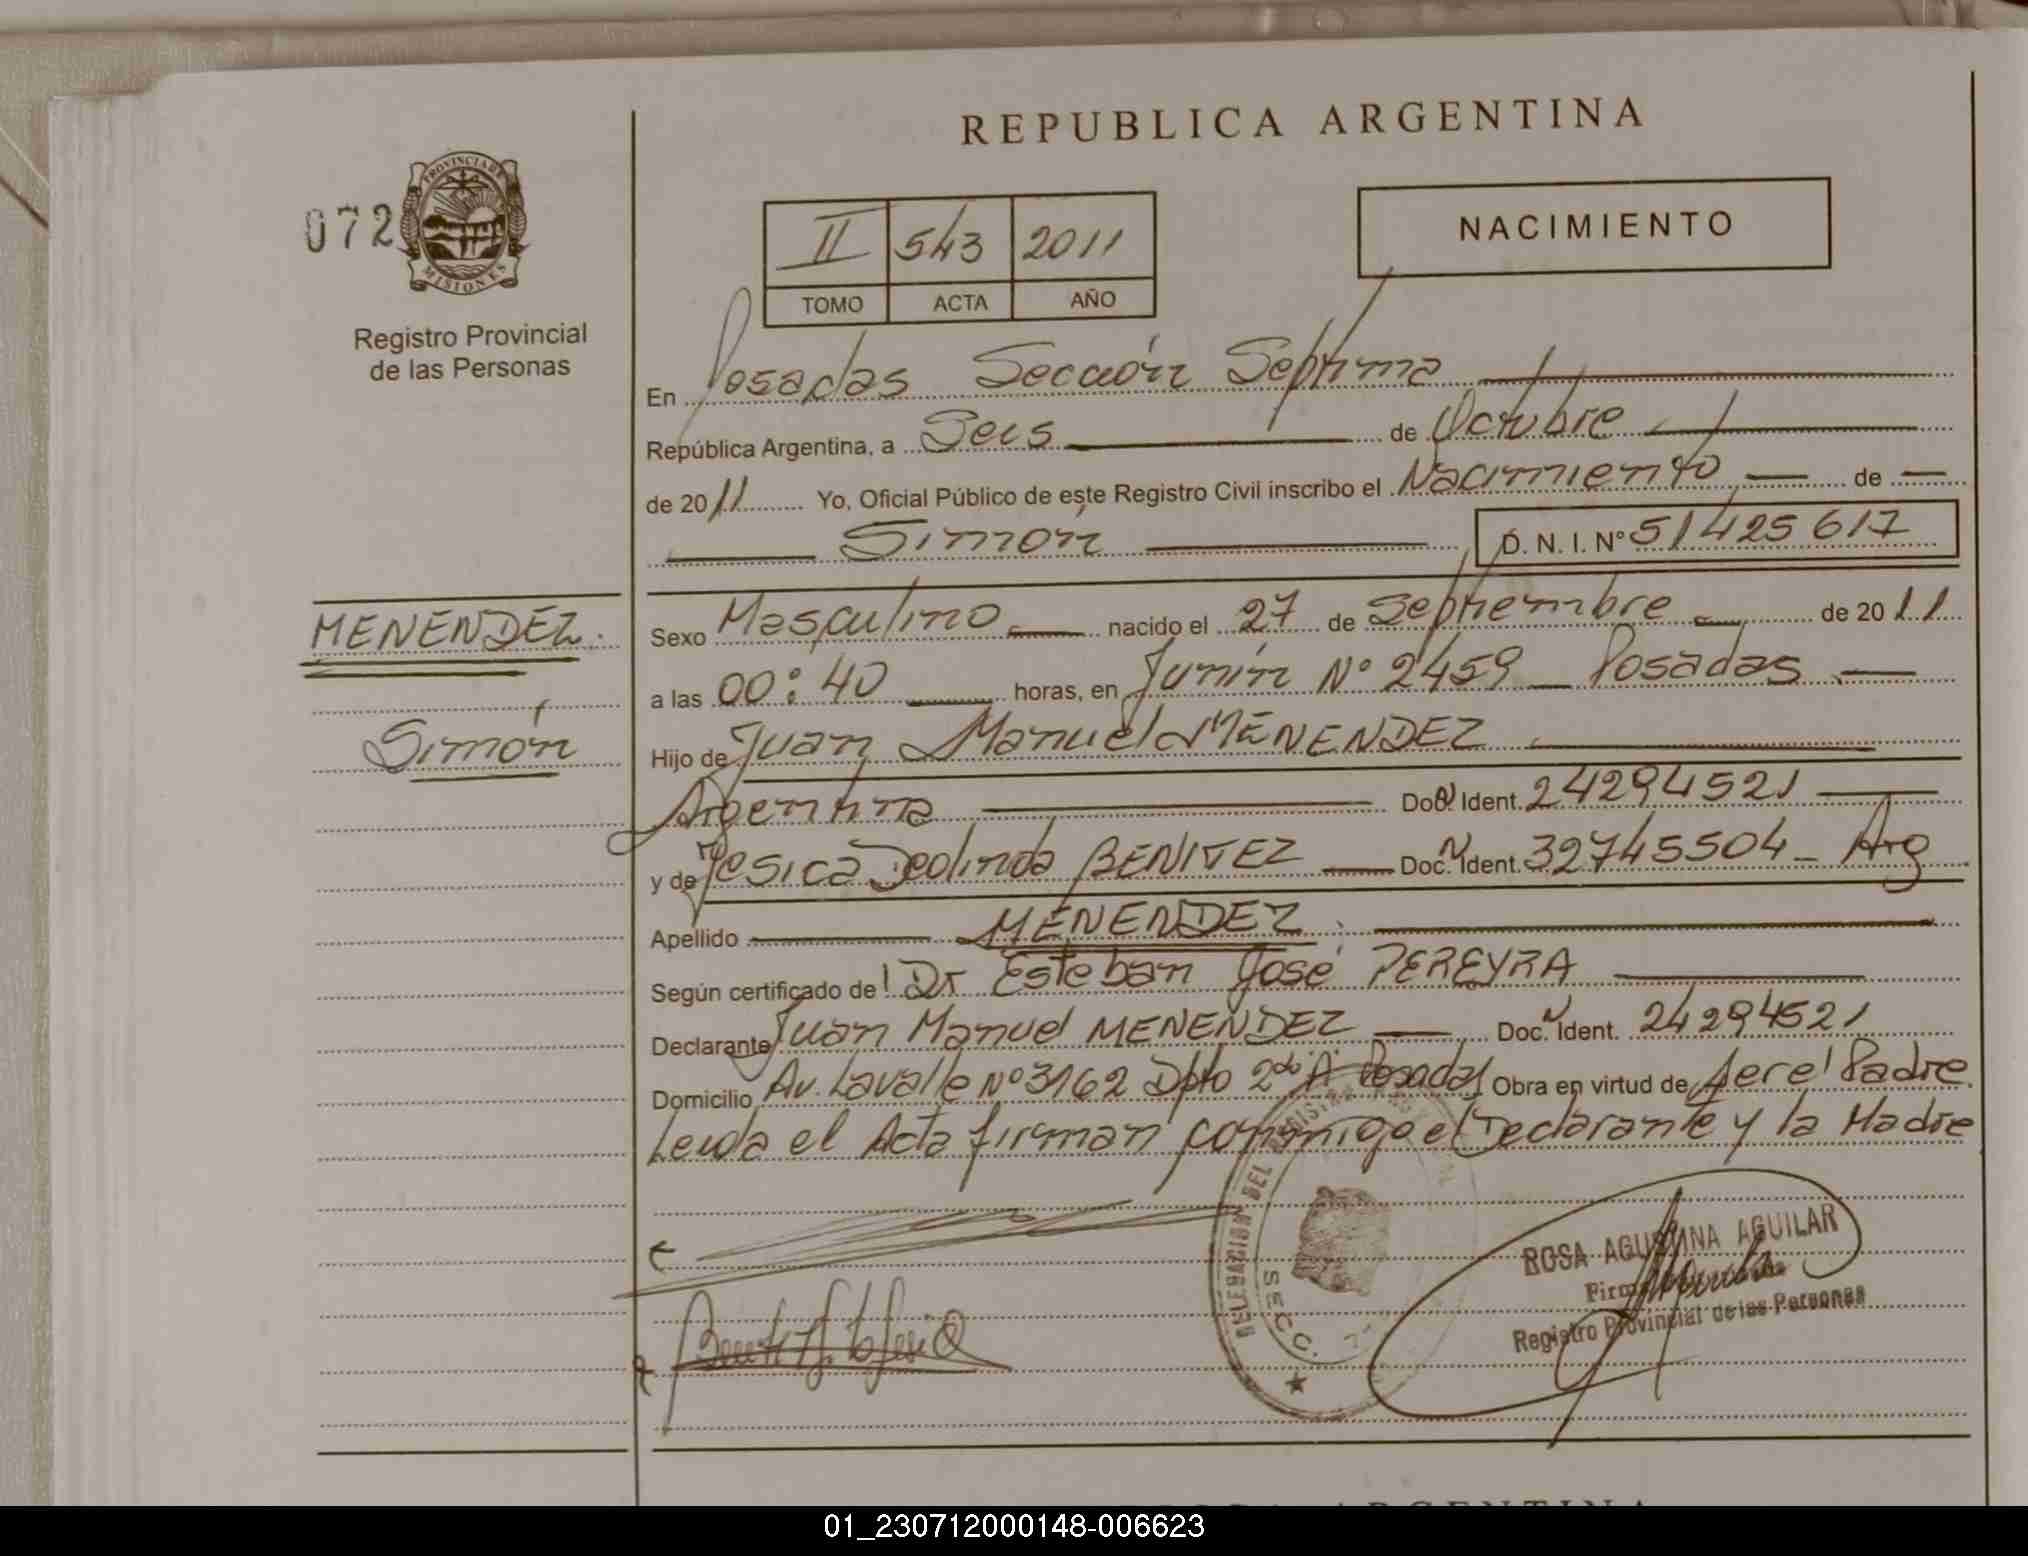 REPUBLICA ARGENTINA
072
PROVINCIA DE
MISIONES
Registro Provincial
de las Personas
II 543 2011
TOMO ACTA AÑO
NACIMIENTO
En Posadas Sección Séptima
República Argentina, a Seis de Octubre
de 2011 Yo, Oficial Público de este Registro Civil inscribo el Nacimiento de
Simón D. N. I. N° 51425617
MENENDEZ.
Simón
Sexo Masculino nacido el 27 de Septiembre de 2011
a las 00:40 horas, en Junín N° 2459 Posadas
Hijo de Juan Manuel MENENDEZ
Argentina Doc. Ident. 24294521
y de Yesica Deolinda BENITEZ Doc. Ident. 32745504 - Arg
Apellido MENENDEZ.
Según certificado del Dr Esteban José PEREYRA
Declarante Juan Manuel MENENDEZ Doc. Ident. 24294521
Domicilio Av. Lavalle N° 3162 Dpto 2do A Posadas Obra en virtud de ser el Padre
Leida el Acta firman conmigo el Declarante y la Madre
DELEGACION DEL
SECC. 7
ROSA AGUSTINA AGUILAR
Registro Provincial de las Personas
ARGENTINA
01_230712000148-006623